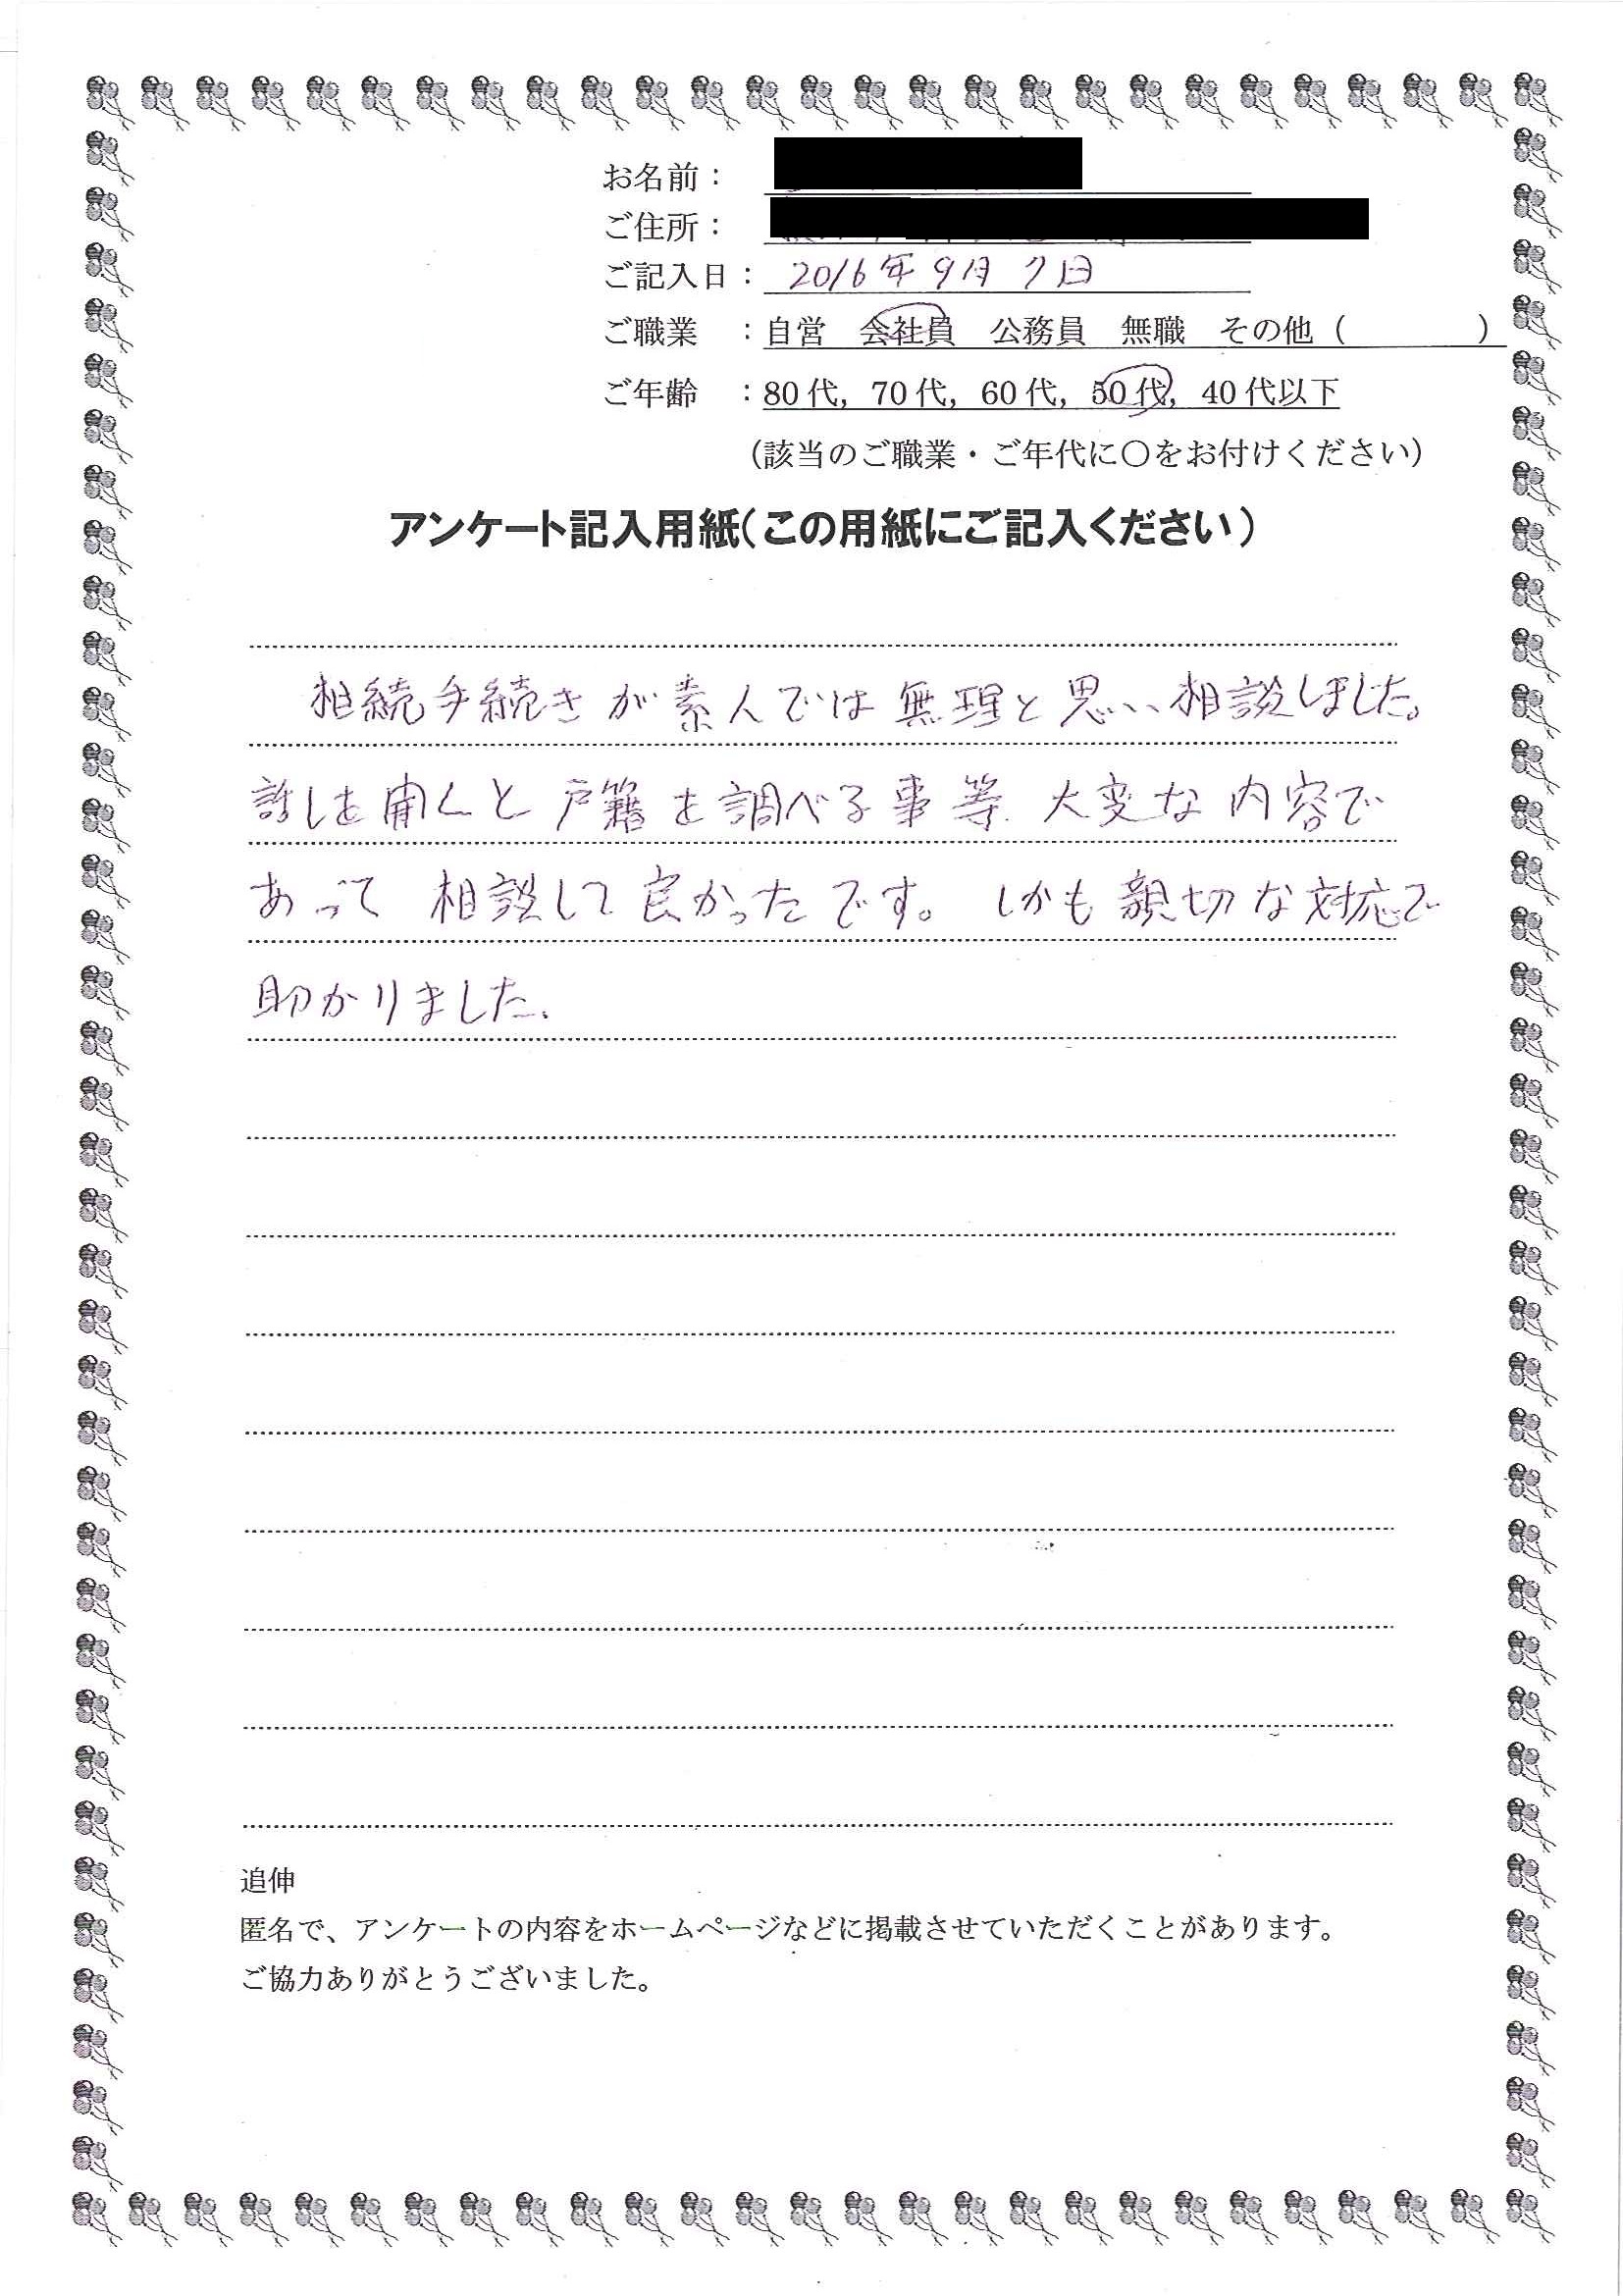 お名前：
ご住所：
ご記入日：2016年9月7日
ご職業　：自営　会社員　公務員　無職　その他（　　　　）
ご年齢　：80代，70代，60代，50代，40代以下
（該当のご職業・ご年代に〇をお付けください）
アンケート記入用紙（この用紙にご記入ください）
相続手続きが素人では無理と思い、相談しました。
話しを聞くと戸籍を調べる事等、大変な内容で
あって 相談して良かったです。しかも親切な対応で
助かりました。
追伸
匿名で、アンケートの内容をホームページなどに掲載させていただくことがあります。
ご協力ありがとうございました。